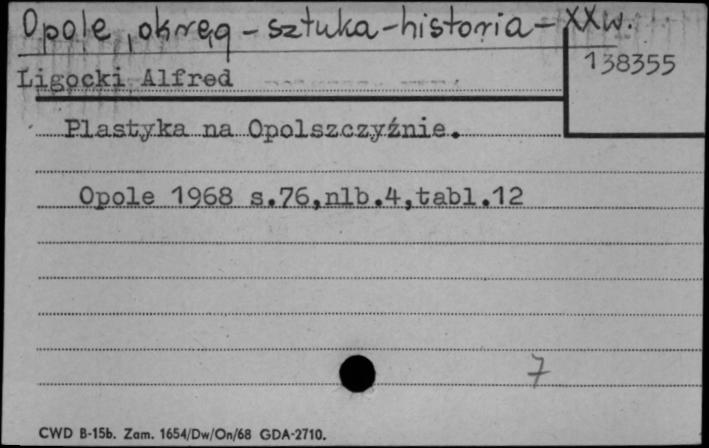 Opole, okręg - sztuka - historia - XX w.
138355
Ligocki Alfred
Plastyka na Opolszczyźnie.
Opole 1968 s.76,nlb.4,tabl.12
7
CWD B-15b. Zam. 1654/Dw/On/68 GDA-2710.